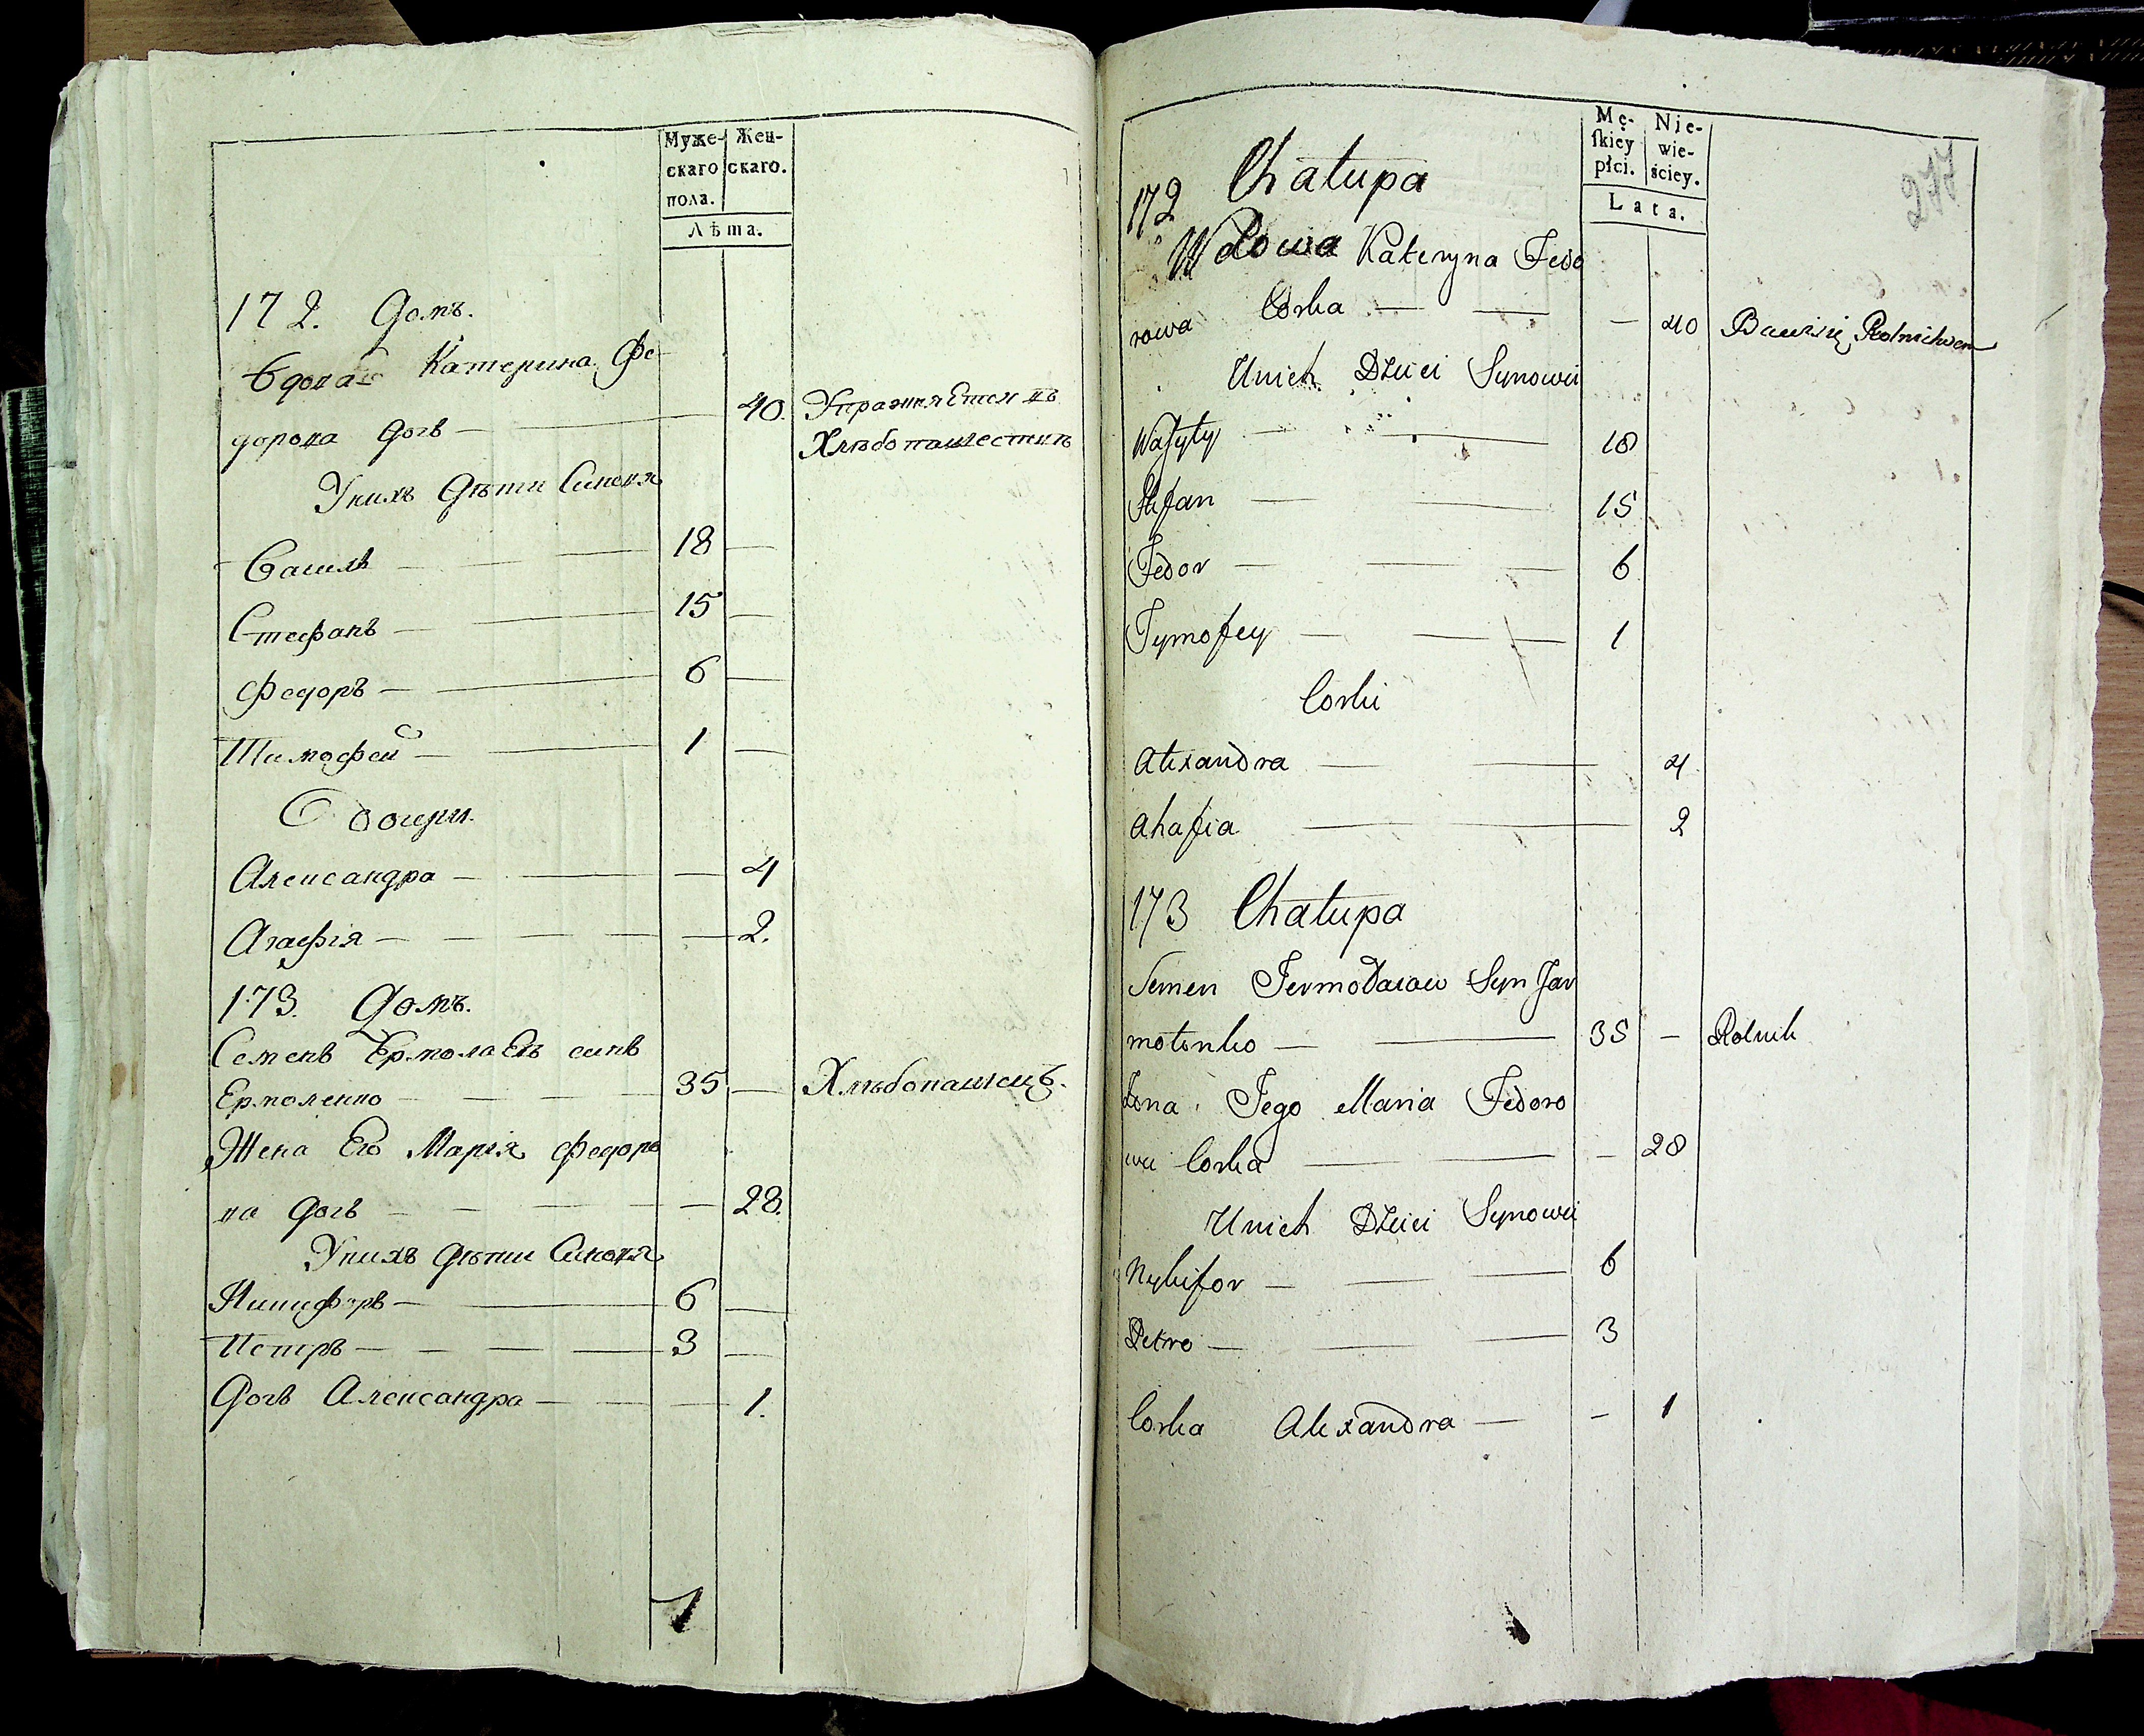 Муже-
скаго
пола.
Жен-
скаго.
Лѣта.
172. Домъ.
Вдова Катерина Фе
дорова дочь — 40. Упражняется въ
Хлѣбопашествѣ
У нихъ дѣти Синовя
Василь — 18 —
Стефанъ — 15 —
Федоръ — 6 —
Тимофей — 1 —
Дочери
Александра — — 4
Агафія — — 2.
173. Домъ.
Семенъ Ермолаевъ синъ
Ермоленко — 35 — Хлѣбопашецъ.
Жена Его Марія Федоро
ва дочь — — 28.
У нихъ дѣти Синовя
Никифоръ — 6 —
Петръ — 3 —
Дочь Александра — — 1.
Mę-
skiey
płci.
Nie-
wie-
ściey.
Lata.
277
172 Chałupa
Wdowa Kateryna Fedo
rowa Corka — — 40 Bawi się Rolnictwem
U nich Dzieci Synowie
Wasyly — 18
Stefan — 15
Fedor — 6
Tymofey — 1
Corki
Alexandra — 4
Ahafia — 2
173 Chałupa
Semen Jermołaiow Syn Jar
motenko — 35 — Rolnik
Żona Jego Maria Fedoro
wa Corka — — 28
U nich Dzieci Synowie
Nykifor — 6
Petro — 3
Corka Alexandra — — 1